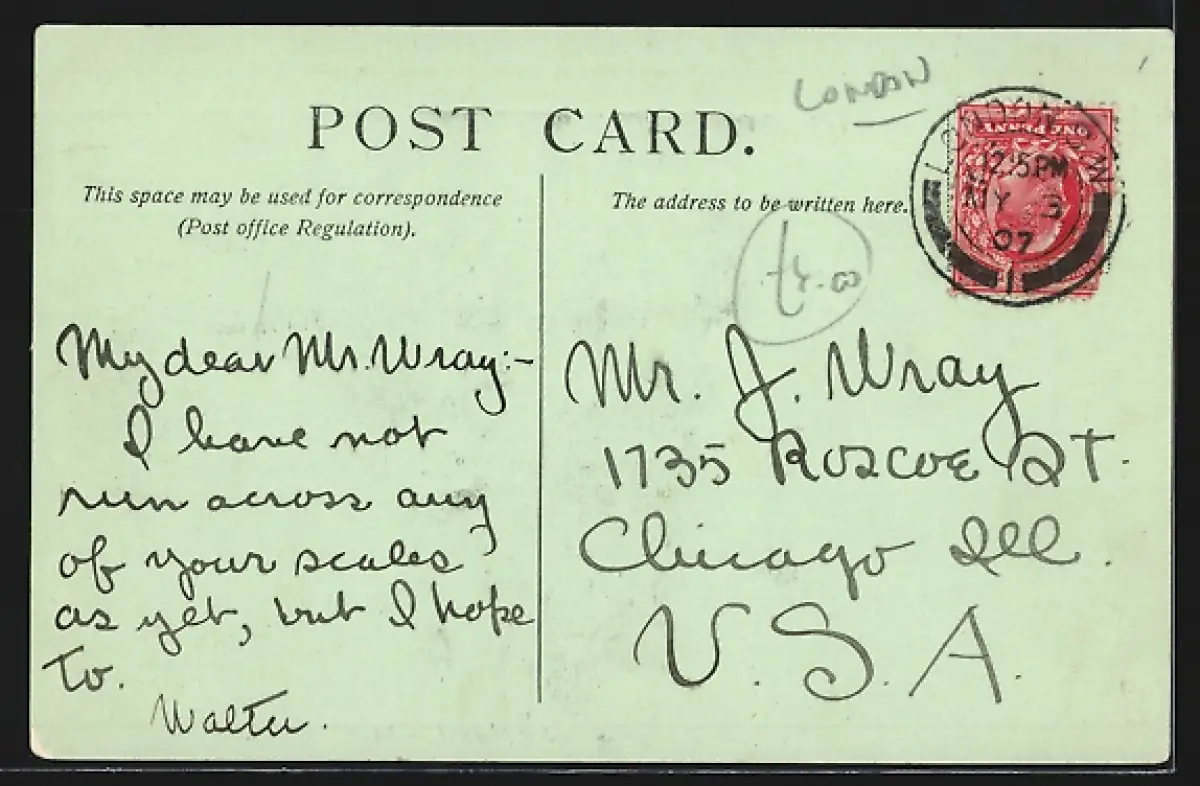 LONDON
POST CARD.
This space may be used for correspondence
(Post office Regulation).
The address to be written here.
ONE PENNY
LONDON S.W
12.15PM
MY 3
07
1
My dear Mr. Wray:-
I have not
run across any
of your scales
as yet, but I hope
to.
Walter.
Mr. J. Wray
1735 Roscoe St.
Chicago Ill.
U.S.A.